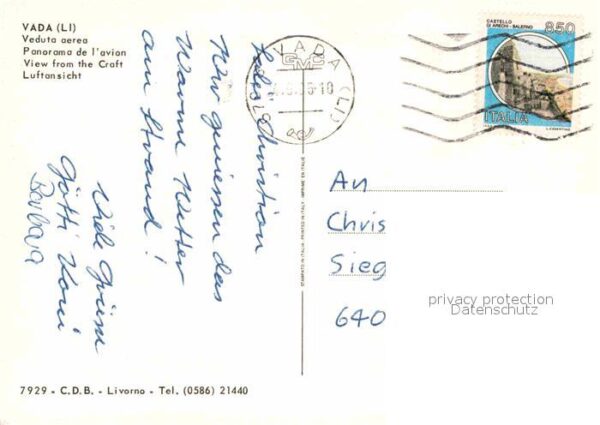 VADA (LI)
Veduta aerea
Panorama de l'avion
View from the Craft
Luftansicht
VADA (LI)
850
CASTELLO
DI ARECHI - SALERNO
ITALIA
Christian
Wir geniessen das
Warme Wetter
am Strand!
Viele Grüsse
Götti Koni
Barbara
STAMPATO IN ITALIA - PRINTED IN ITALY - IMPRIME EN ITALIE
An
Chris
Sieg
640
privacy protection
Datenschutz
7929 - C.D.B. - Livorno - Tel. (0586) 21440